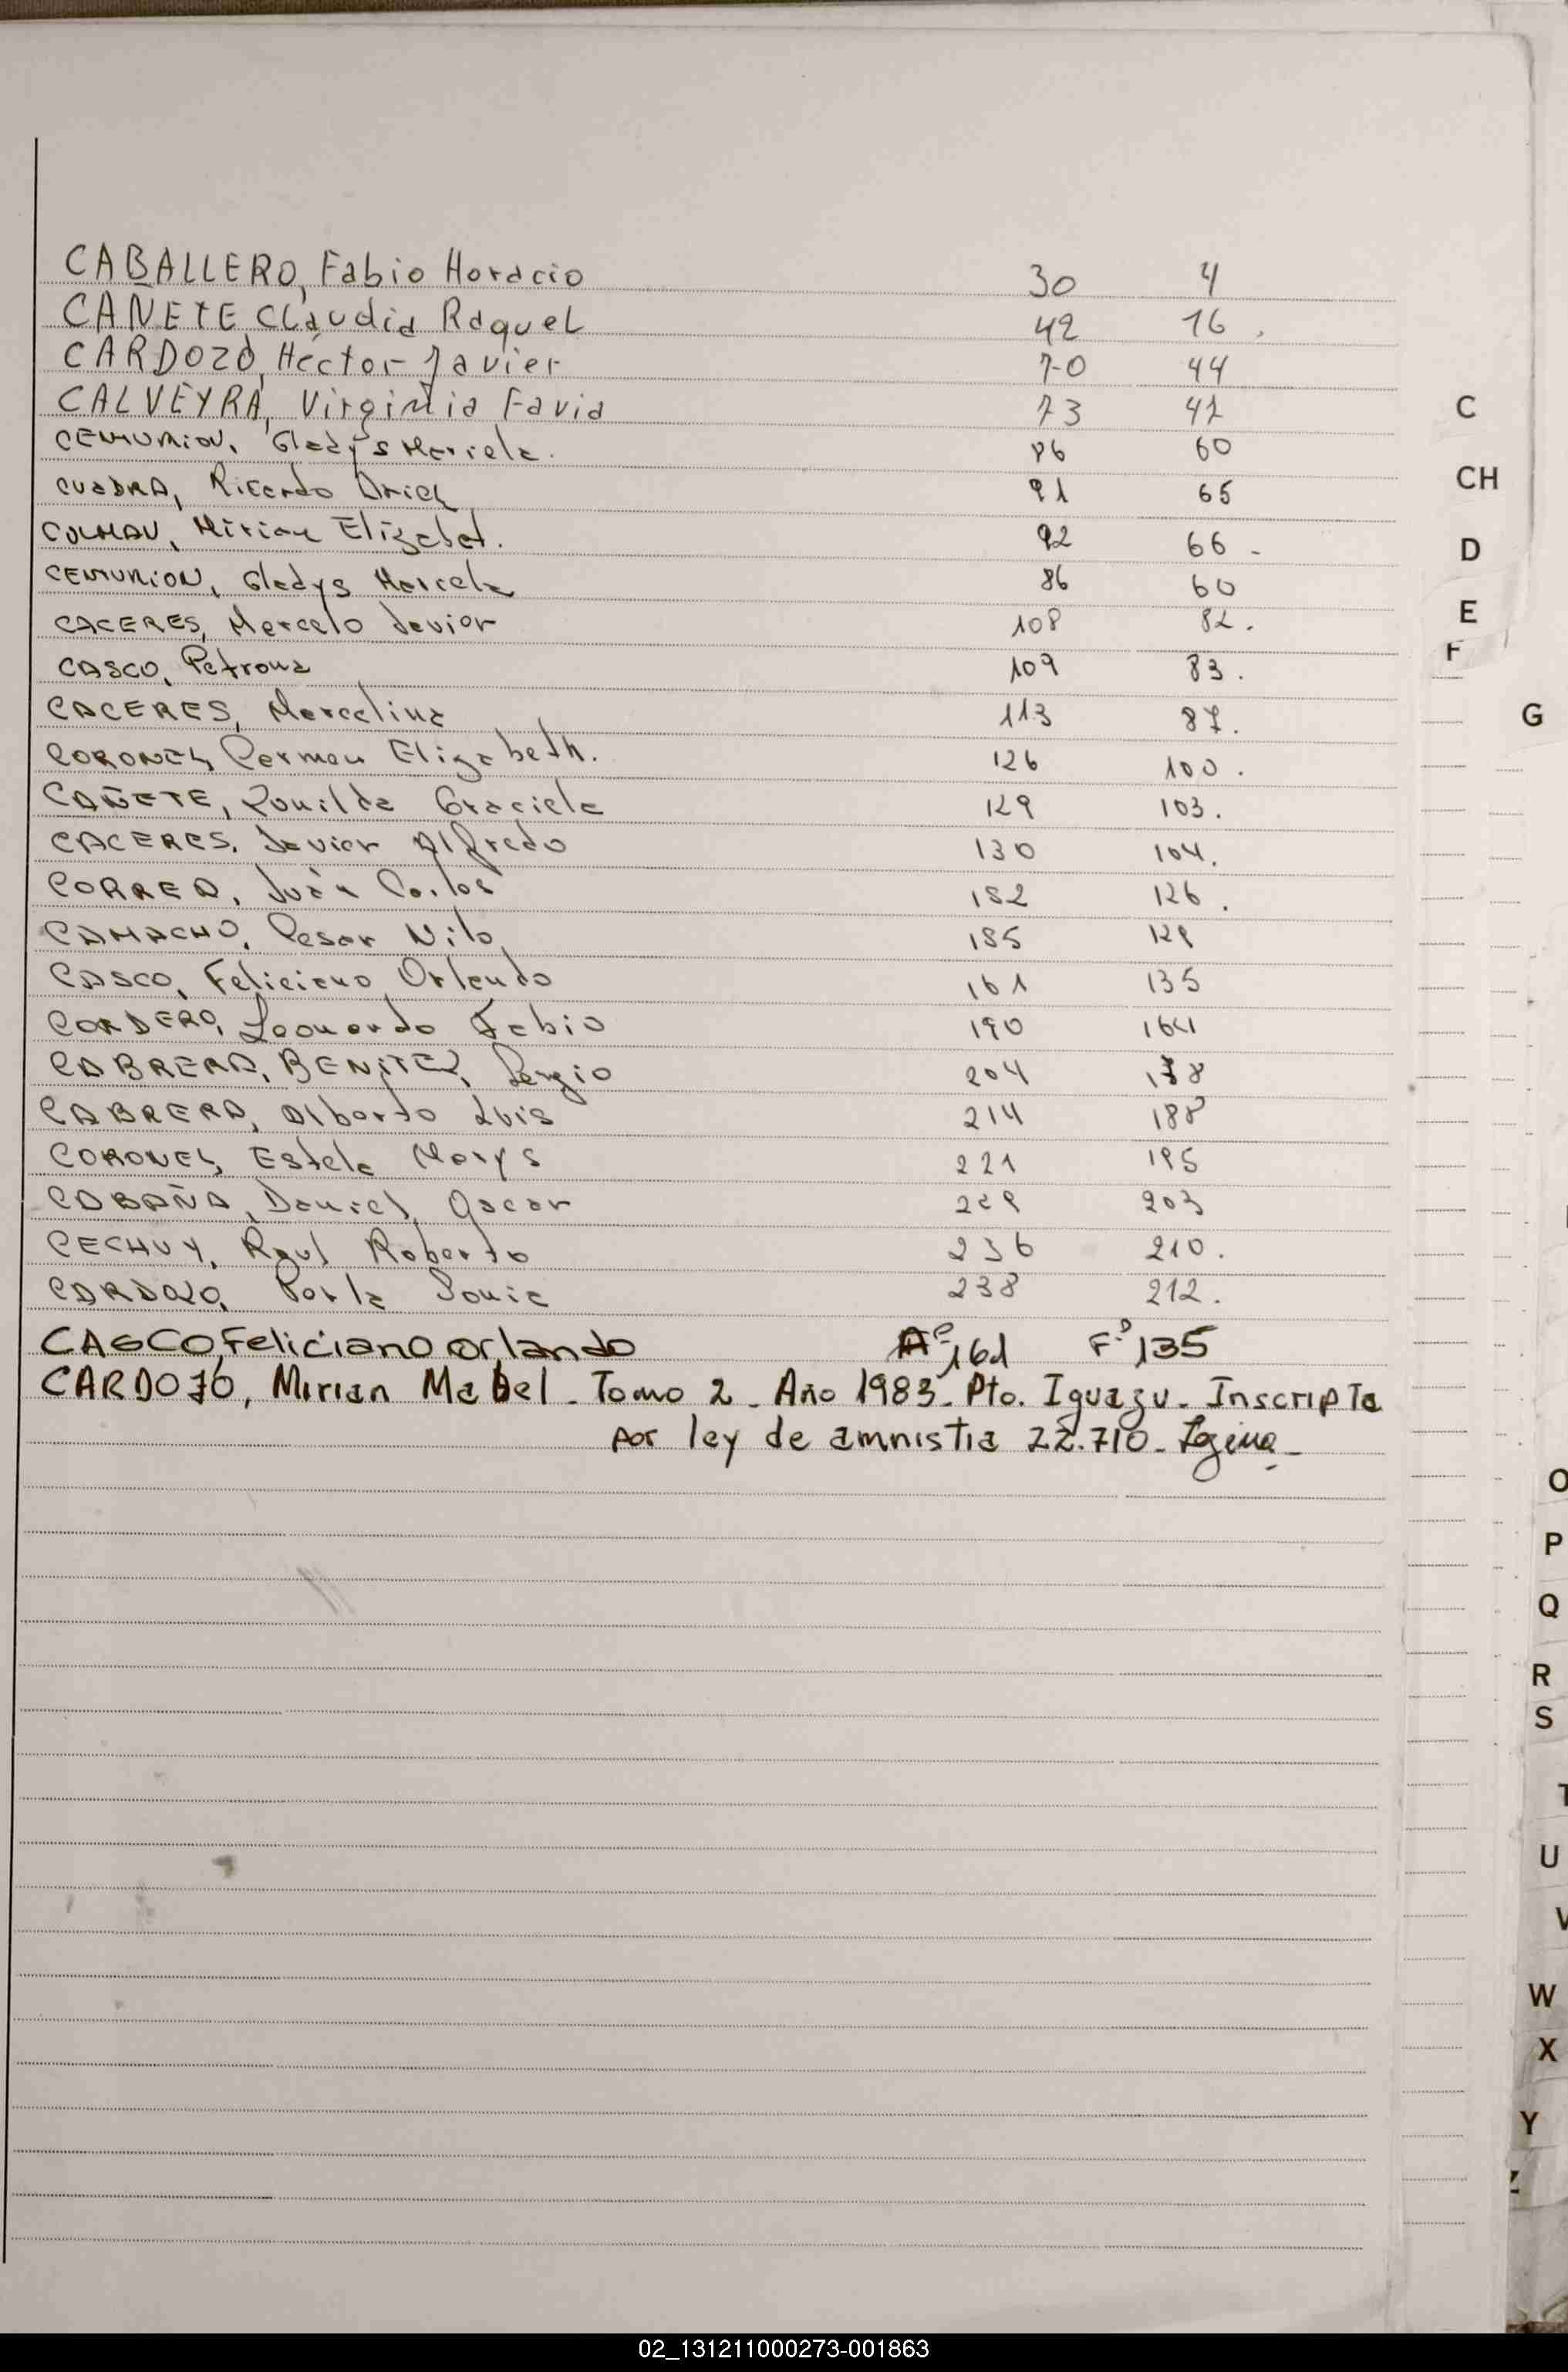 CABALLERO, Fabio Horacio 30 4
CAÑETE, Claudia Raquel 42 16.
CARDOZO, Héctor Javier 70 44
CALVEYRA, Virginia Favia 73 47
CENTURION, Gladys Mariela. 86 60
CUADRA, Ricardo Ariel 91 65
COLMAN, Mirian Elizabet. 92 66 -
CENTURION, Gladys Marcela 86 60
CACERES, Marcelo Javier 108 82.
CASCO, Petrona 109 83.
CACERES, Marcelina 113 87.
CORONEL, Carmen Elizabeth. 126 100.
CAÑETE, Cunilda Graciela 129 103.
CACERES, Javier Alfredo 130 104.
CORREA, Juan Carlos 152 126.
CAMACHO, Cesar Nilo 155 129
CASCO, Feliciano Orlando 161 135
CORDERO, Leonardo Fabio 190 164
CABRERA, BENITEZ, Sergio 204 178
CABRERA, Alberto Luis 214 188
CORONEL, Estela Marys 221 195
CABAÑA, Daniel, Oscar 229 203
CECHUY, Raul Roberto 236 210.
CARDOZO, Carla Sonia 238 212.
CASCO, Feliciano Orlando Aº 161 Fº 135
CARDOZO, Mirian Mabel - Tomo 2 - Año 1983 - Pto. Iguazu - Inscripta
por ley de amnistia 22.710 -
C
CH
D
E
F
G
O
P
Q
R
S
T
U
V
W
X
Y
Z
02_131211000273-001863